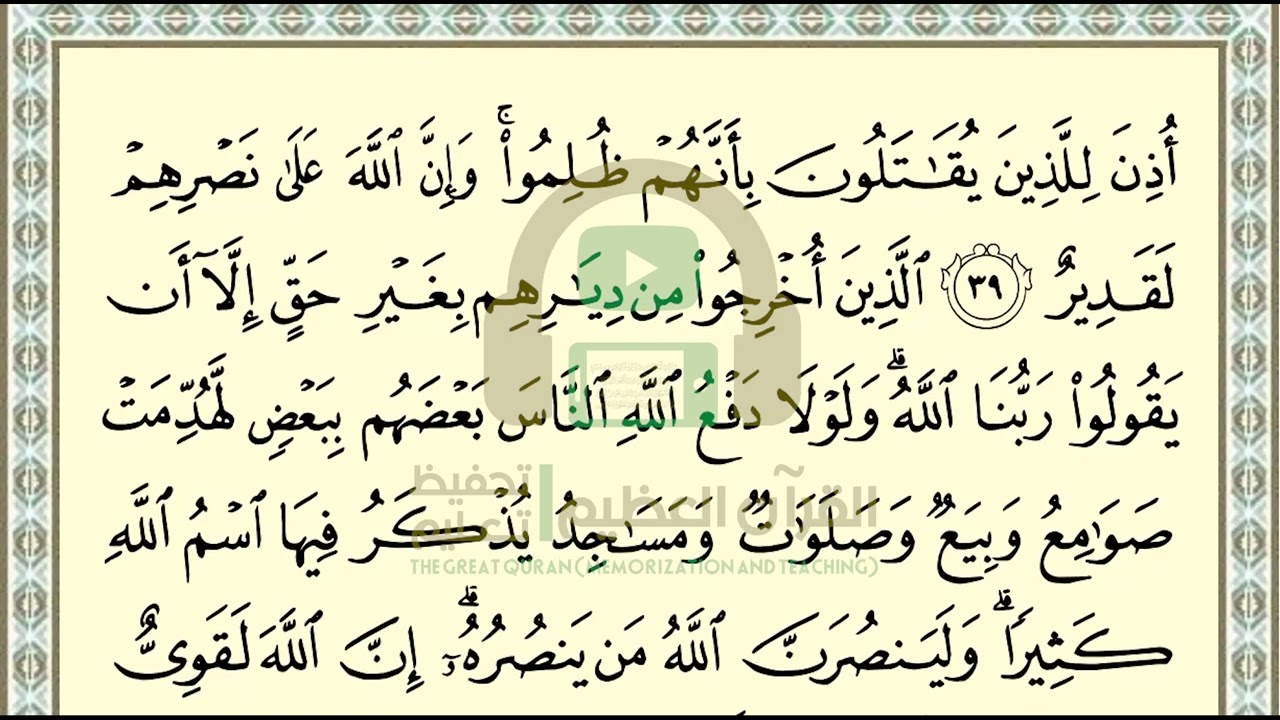 أُذِنَ لِلَّذِينَ يُقَٰتَلُونَ بِأَنَّهُمۡ ظُلِمُواْۚ وَإِنَّ ٱللَّهَ عَلَىٰ نَصۡرِهِمۡ
لَقَدِيرٌ ٣٩ ٱلَّذِينَ أُخۡرِجُواْ مِن دِيَٰرِهِم بِغَيۡرِ حَقٍّ إِلَّآ أَن
يَقُولُواْ رَبُّنَا ٱللَّهُۗ وَلَوۡلَا دَفۡعُ ٱللَّهِ ٱلنَّاسَ بَعۡضَهُم بِبَعۡضٖ لَّهُدِّمَتۡ
القرآن العظيم تحفيظ تعليم
صَوَٰمِعُ وَبِيَعٞ وَصَلَوَٰتٞ وَمَسَٰجِدُ يُذۡكَرُ فِيهَا ٱسۡمُ ٱللَّهِ
THE GREAT QURAN (MEMORIZATION AND TEACHING)
كَثِيرٗاۗ وَلَيَنصُرَنَّ ٱللَّهُ مَن يَنصُرُهُۥٓۗ إِنَّ ٱللَّهَ لَقَوِيٌّ